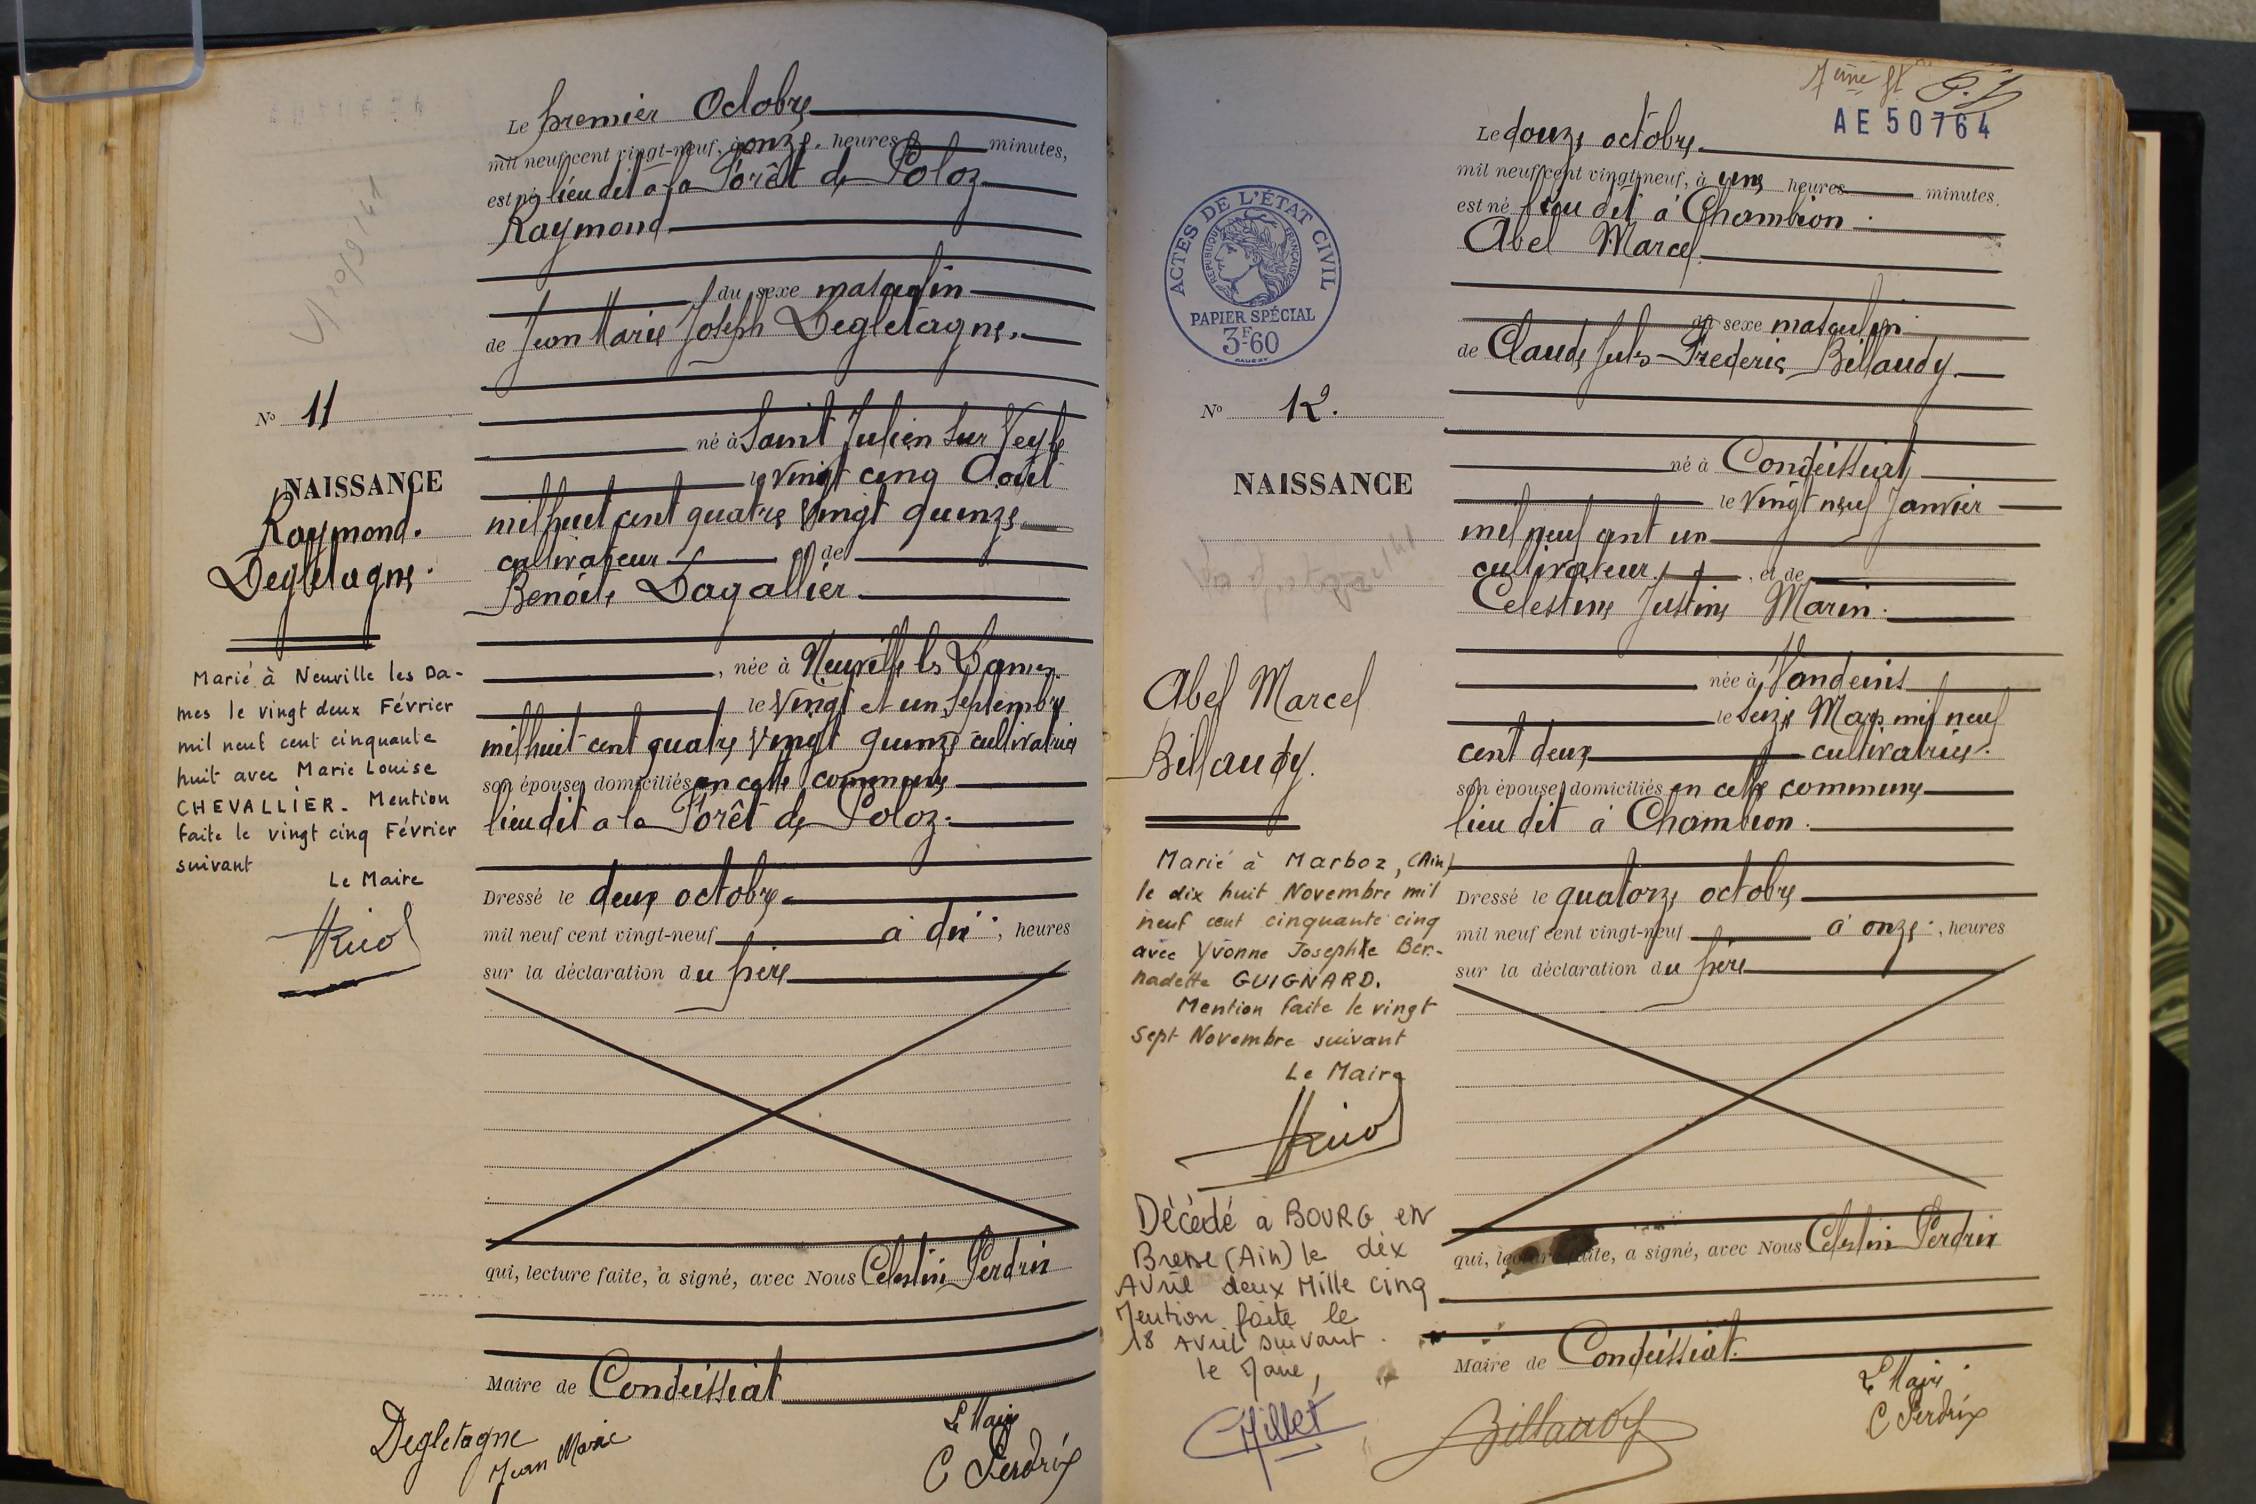 Le premier Octobre
mil neuf cent vingt-neuf, à onze heures minutes,
est né lieu dit a la Forêt de Poloz
Raymond
du sexe masculin
de Jean Marie Joseph Degletagne.
né à Saint Julien sur Veyle
le vingt cinq Août
mil huit cent quatre vingt quinze
cultivateur et de
Benoîte Dagallier
, née à Neuville les Dames
le vingt et un septembre
mil huit cent quatre vingt quinze cultivatrice
son épouse domiciliés en cette commune
lieu dit a la Forêt de Poloz.
Dressé le deux octobre
mil neuf cent vingt-neuf à dix, heures
sur la déclaration du père
qui, lecture faite, a signé, avec Nous Celestin Perdrix
Maire de Condeissiat
Degletagne
Jean Marie
Le Maire
C Perdrix
N° 11
NAISSANCE
Raymond.
Degletagne.
Marié à Neuville les Da-
mes le vingt deux Février
mil neuf cent cinquante
huit avec Marie Louise
CHEVALLIER. Mention
faite le vingt cinq Février
suivant
Le Maire
7ème ft
AE 50764
Le douze octobre
mil neuf cent vingt-neuf, à une heures minutes,
est né lieu dit à Chambion.
Abel Marcel
du sexe masculin
de Claude Jules Frederic Billaudy.
né à Condeissiat
le vingt neuf Janvier
mil neuf cent un
cultivateur, et de
Celestine Justine Marin.
née à Vandeins
le seize Mars mil neuf
cent deux cultivatrice.
son épouse domiciliés en cette commune
lieu dit à Chambion.
Dressé le quatorze octobre
mil neuf cent vingt-neuf à onze, heures
sur la déclaration du père
qui, lecture faite, a signé, avec Nous Celestin Perdrix
Maire de Condeissiat.
Billaudy
Le Maire
C Perdrix
ACTES DE L'ÉTAT CIVIL
RÉPUBLIQUE FRANÇAISE
PAPIER SPÉCIAL
3F60
N° 12.
NAISSANCE
Abel Marcel
Billaudy.
Marié à Marboz, (Ain)
le dix huit Novembre mil
neuf cent cinquante cinq
avec Yvonne Josephte Ber-
nadette GUIGNARD.
Mention faite le vingt
sept Novembre suivant
Le Maire
Décédé à BOURG EN
Bresse (Ain) le dix
Avril deux Mille cinq
Mention faite le
18 Avril suivant.
le Maire,
Millet